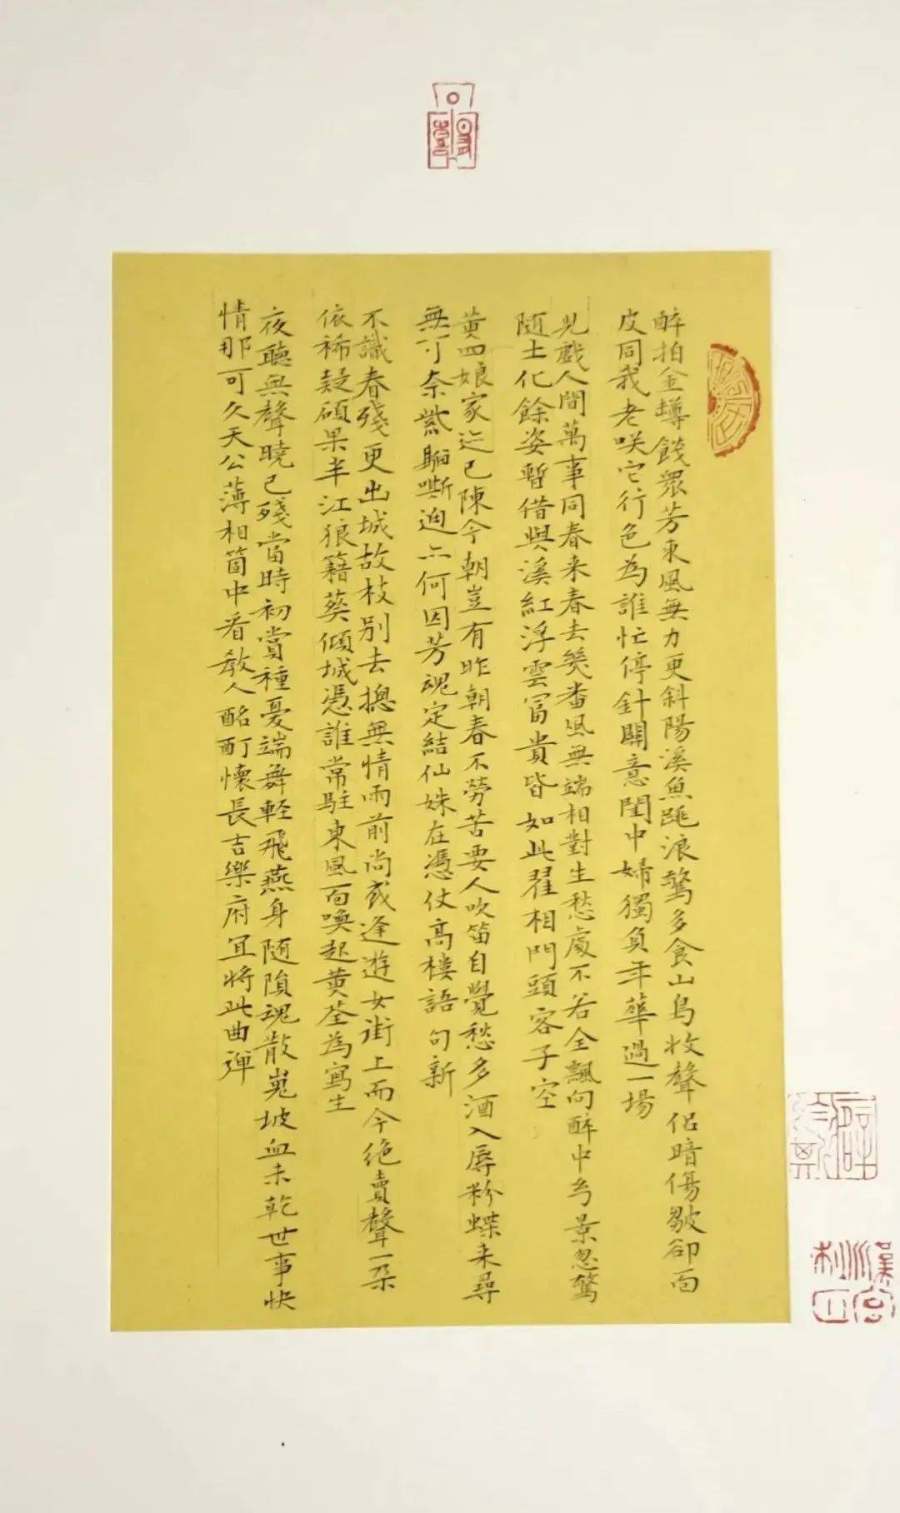 醉拍金罇餞眾芳東風無力更斜陽溪魚跳浪驚多食山鳥收聲似暗傷皺卻面
皮同我老咲它行色為誰忙停針闗意閨中婦獨負年華過一場
兒戲人間萬事同春来春去幾番風無端相對生愁處不若全飄向醉中光景忽驚
随土化餘姿暫借與溪紅浮雲富貴皆如此翟相門頭客子空
黄四娘家迹已陳今朝豈有昨朝春不勞苦要人吹笛自覺愁多酒入唇粉蝶来尋
無可奈紫騮嘶迫亦何因芳魂定結仙姝在憑仗高樓語句新
不識春殘更出城故枝別去摠無情雨前尚或逢遊女街上而今絶賣聲一朶
依稀疑碩果半江狼籍葬傾城憑誰常駐東風面喚起黄荃為寫生
夜聽無聲曉已殘當時初賞種憂端舞輕飛燕身随隕魂散嵬坡血未乾世事快
情那可久天公薄相箇中看教人酩酊懷長吉樂府冝将此曲彈